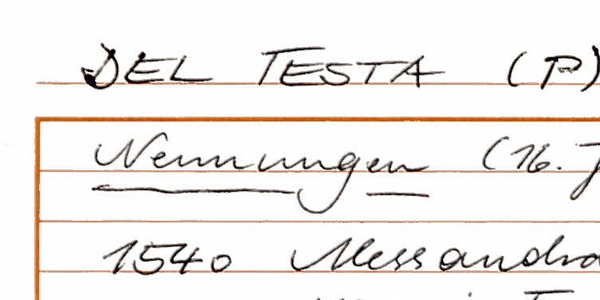 DEL TESTA (P)
Nennungen (16. J
1540 Alessandro